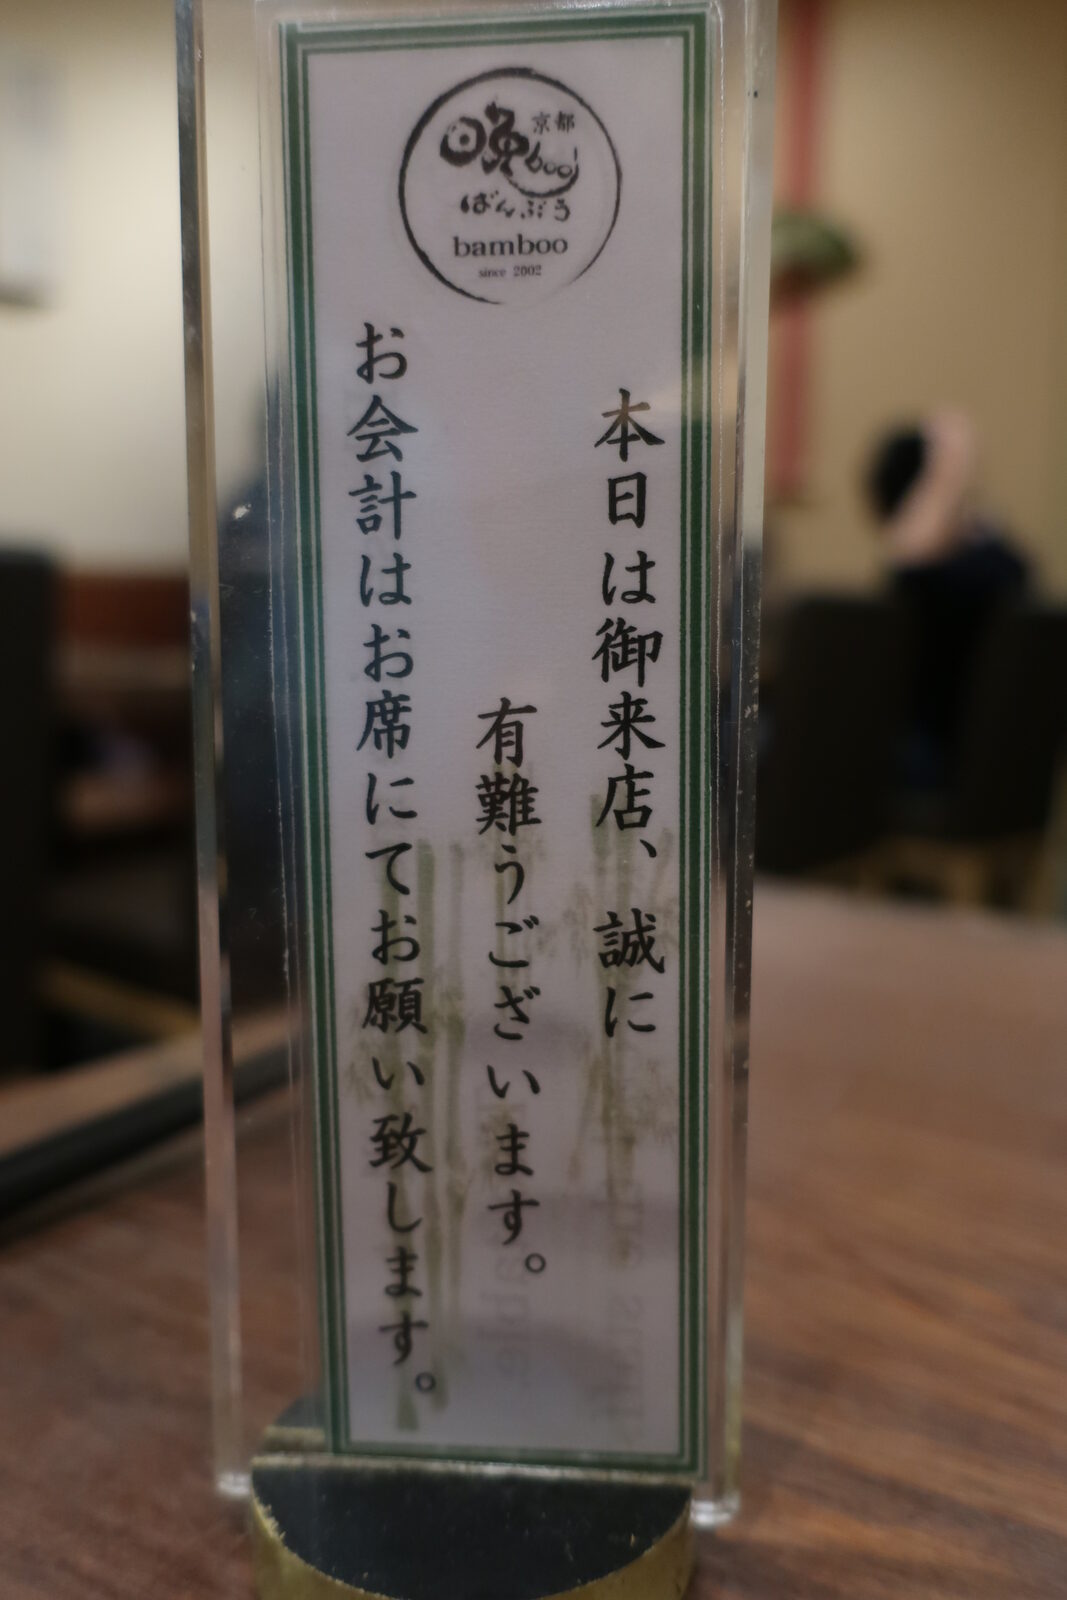 京都
晩boo
ばんぶう
bamboo
since 2002
本日は御来店、誠に
有難うございます。
お会計はお席にてお願い致します。